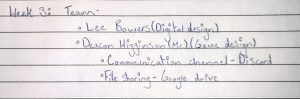 Week 3: Team-
• Lee Bowers (Digital design)
• Deacon Higginson (Me) (Game design)
• Communication channel - Discord
• File sharing - Google drive